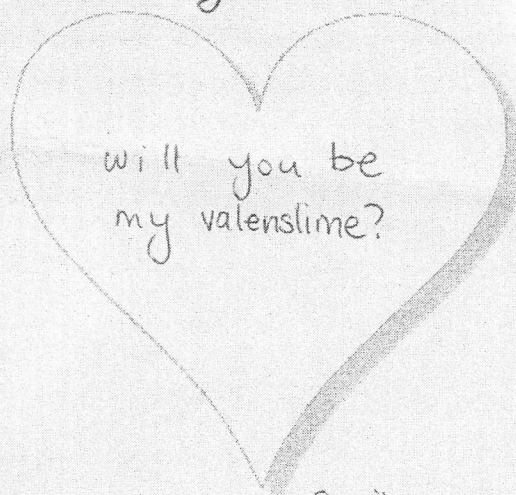 will you be
my valenslime?